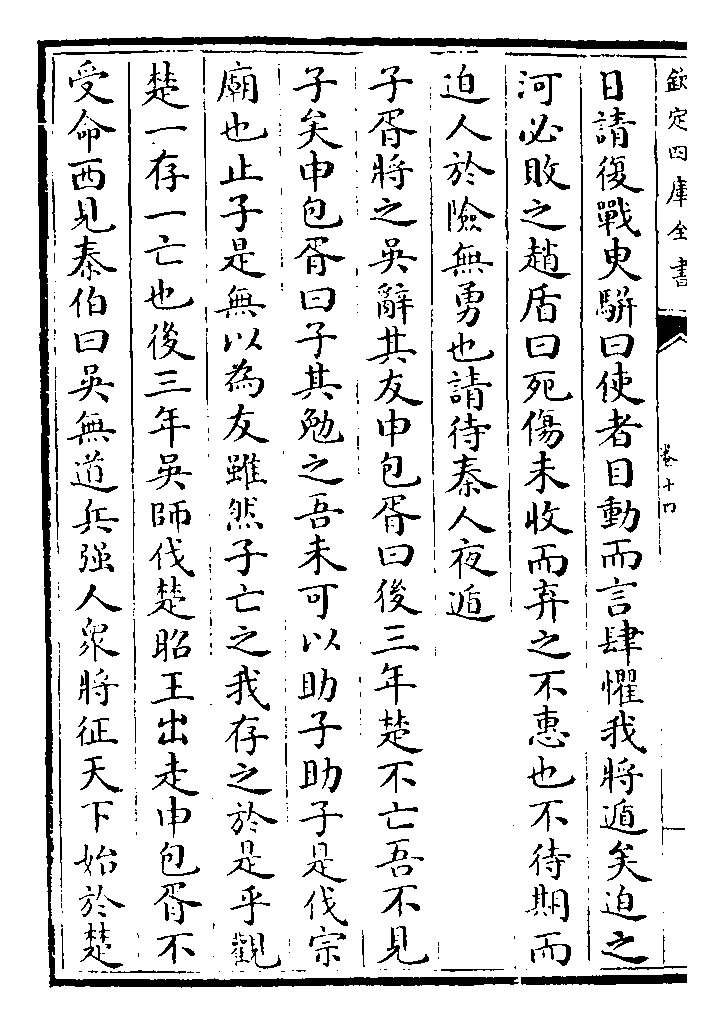 欽定四庫全書
卷十四
日請復戰臾駢曰使者目動而言肆懼我將遁矣迫之
河必敗之趙盾曰死傷未收而弃之不惠也不待期而
迫人於險無勇也請待秦人夜遁
子胥將之吳辭其友申包胥曰後三年楚不亡吾不見
子矣申包胥曰子其勉之吾未可以助子助子是伐宗
廟也止子是無以為友雖然子亡之我存之於是乎觀
楚一存一亡也後三年吳師伐楚昭王出走申包胥不
受命西見秦伯曰吳無道兵强人衆將征天下始於楚